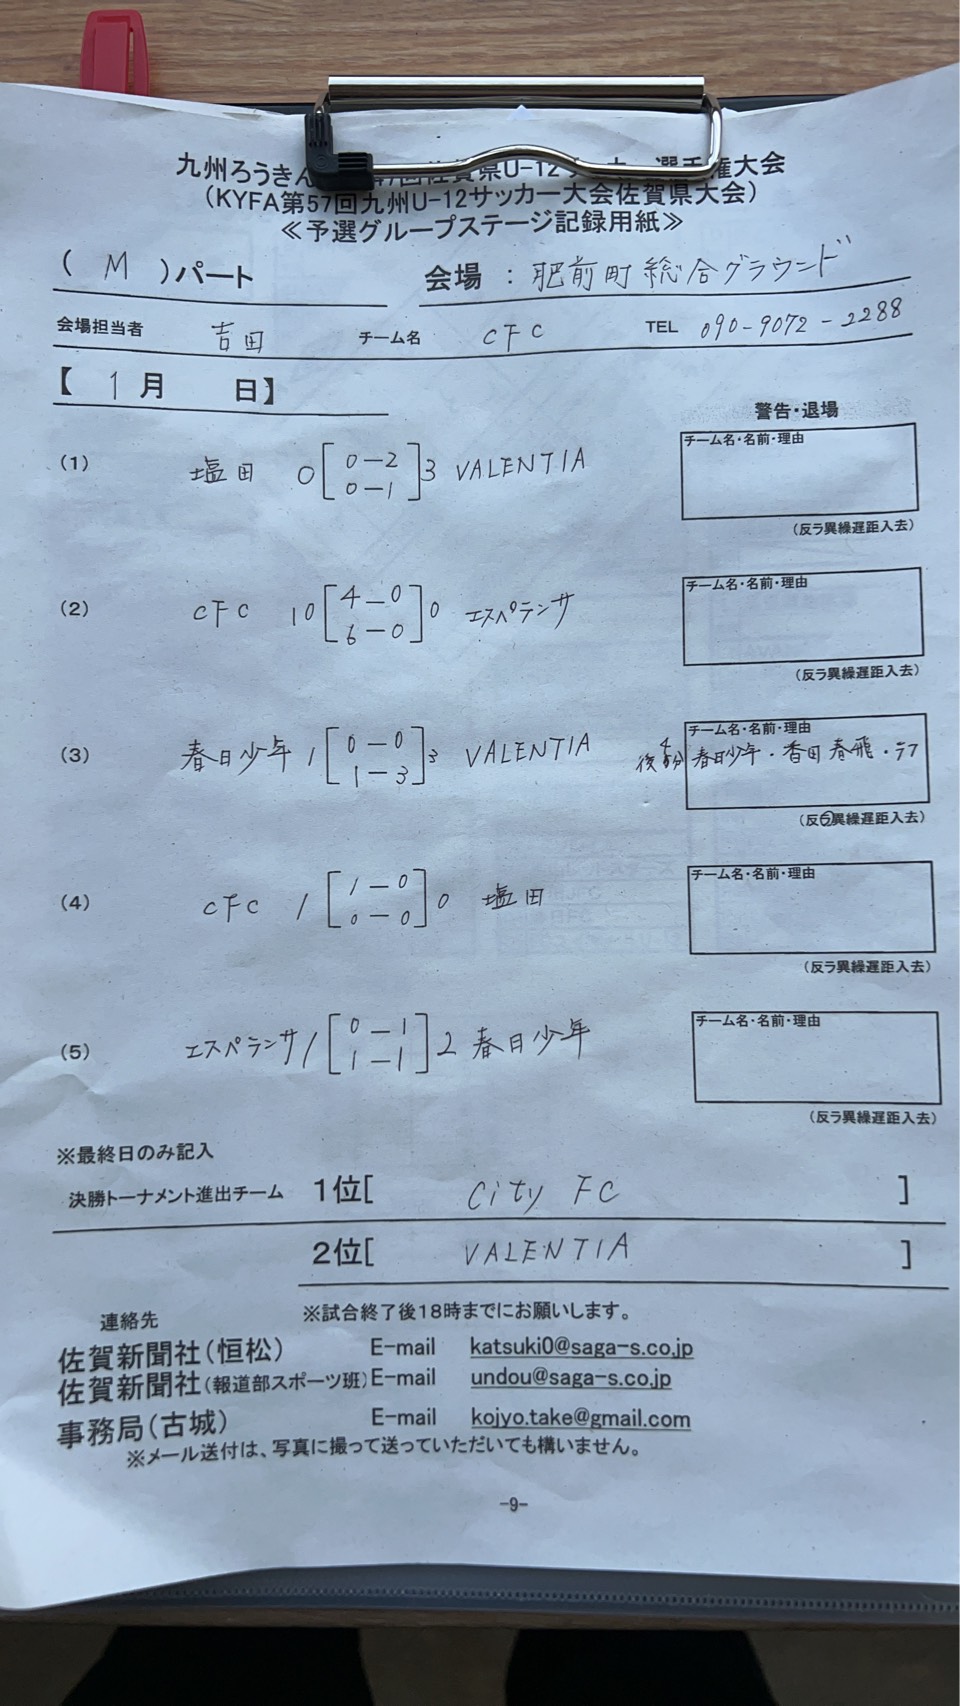 九州ろうきん 47回佐賀県U-12サッカー選手権大会
(KYFA第57回九州U-12サッカー大会佐賀県大会)
≪予選グループステージ記録用紙≫
( M )パート 会場 : 肥前町総合グラウンド
会場担当者 吉田 チーム名 CFC TEL 090-9072-2288
【 1月 日】
警告・退場
(1) 塩田 0 [0-2 3 VALENTIA チーム名・名前・理由
0-1]
(反ラ異繰遅距入去)
(2) CFC 10 [4-0 0 エスペランサ チーム名・名前・理由
6-0]
(反ラ異繰遅距入去)
(3) 春日少年 1 [0-0 3 VALENTIA チーム名・名前・理由
1-3] 後 分 春日少年・香田 春飛・ラフ
(反ラ異繰遅距入去)
(4) CFC 1 [1-0 0 塩田 チーム名・名前・理由
0-0]
(反ラ異繰遅距入去)
(5) エスペランサ 1 [0-1 2 春日少年 チーム名・名前・理由
1-1]
(反ラ異繰遅距入去)
※最終日のみ記入
決勝トーナメント進出チーム 1位[ City FC ]
2位[ VALENTIA ]
連絡先 ※試合終了後18時までにお願いします。
佐賀新聞社(恒松) E-mail katsuki0@saga-s.co.jp
佐賀新聞社(報道部スポーツ班) E-mail undou@saga-s.co.jp
事務局(古城) E-mail kojyo.take@gmail.com
※メール送付は、写真に撮って送っていただいても構いません。
-9-